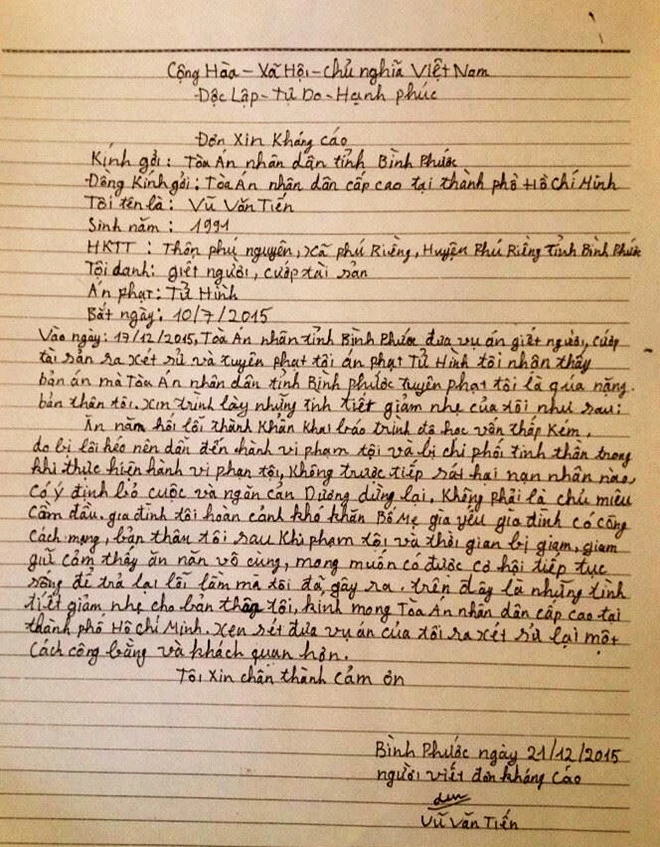 Cộng Hòa - Xã Hội - chủ nghĩa Việt Nam
Độc Lập - Tự Do - Hạnh phúc
Đơn Xin Kháng cáo
Kính gởi : Tòa Án nhân dân tỉnh Bình Phước
Đồng Kính gởi : Tòa Án nhân dân cấp cao tại thành phố Hồ Chí Minh
Tôi tên là : Vũ Văn Tiến
Sinh năm : 1991
HKTT : Thôn phú nguyên, Xã phú Riềng, Huyện Phú Riềng Tỉnh Bình Phước
Tội danh : giết người, cướp tài sản
Án phạt : Tử Hình
Bắt ngày : 10/7/2015
Vào ngày : 17/12/2015, Tòa Án nhân tỉnh Bình Phước đưa vụ án giết người, cướp
tài sản ra xét sử và tuyên phạt tôi án phạt Tử Hình tôi nhận thấy
bản án mà Tòa Án nhân dân tỉnh Bình phước tuyên phạt tôi là qúa nặng.
bản thân tôi. xin trình bày những tình tiết giảm nhẹ của tôi như sau :
Ăn năn hối lỗi thành Khẩn Khai báo trình độ học vấn thấp Kém,
do bị lôi kéo nên dẫn đến hành vi phạm tội và bị chi phối tinh thần trong
khi thực hiện hành vi phạn tội, Không trược tiếp sát hại nạn nhân nào,
Có ý định bỏ cuộc và ngăn cản Dương dừng lại. Không phải là chủ miêu
Cầm đầu. gia đình tôi hoàn cảnh khó khăn Bố Mẹ gìa yếu gia đình có công
Cách mạng, bản thân tôi sau Khi phạm tội và thời gian bị giam, giam
giữ cảm thấy ăn năn vô cùng, mong muốn có được cơ hội tiếp tục
sống để trả lại lỗi lầm mà tôi đã gây ra. trên đây là những tình
tiết giảm nhẹ cho bản thân tôi, kính mong Tòa Án nhân dân cấp cao tại
thành phố Hồ Chí Minh. Xen sét đưa vụ án của tôi ra xét sử lại một
Cách công bằng và khách quan hơn.
Tôi Xin chân thành cảm ơn
Bình Phước ngày 21/12/2015
người viết đơn kháng Cáo
Vũ Văn Tiến